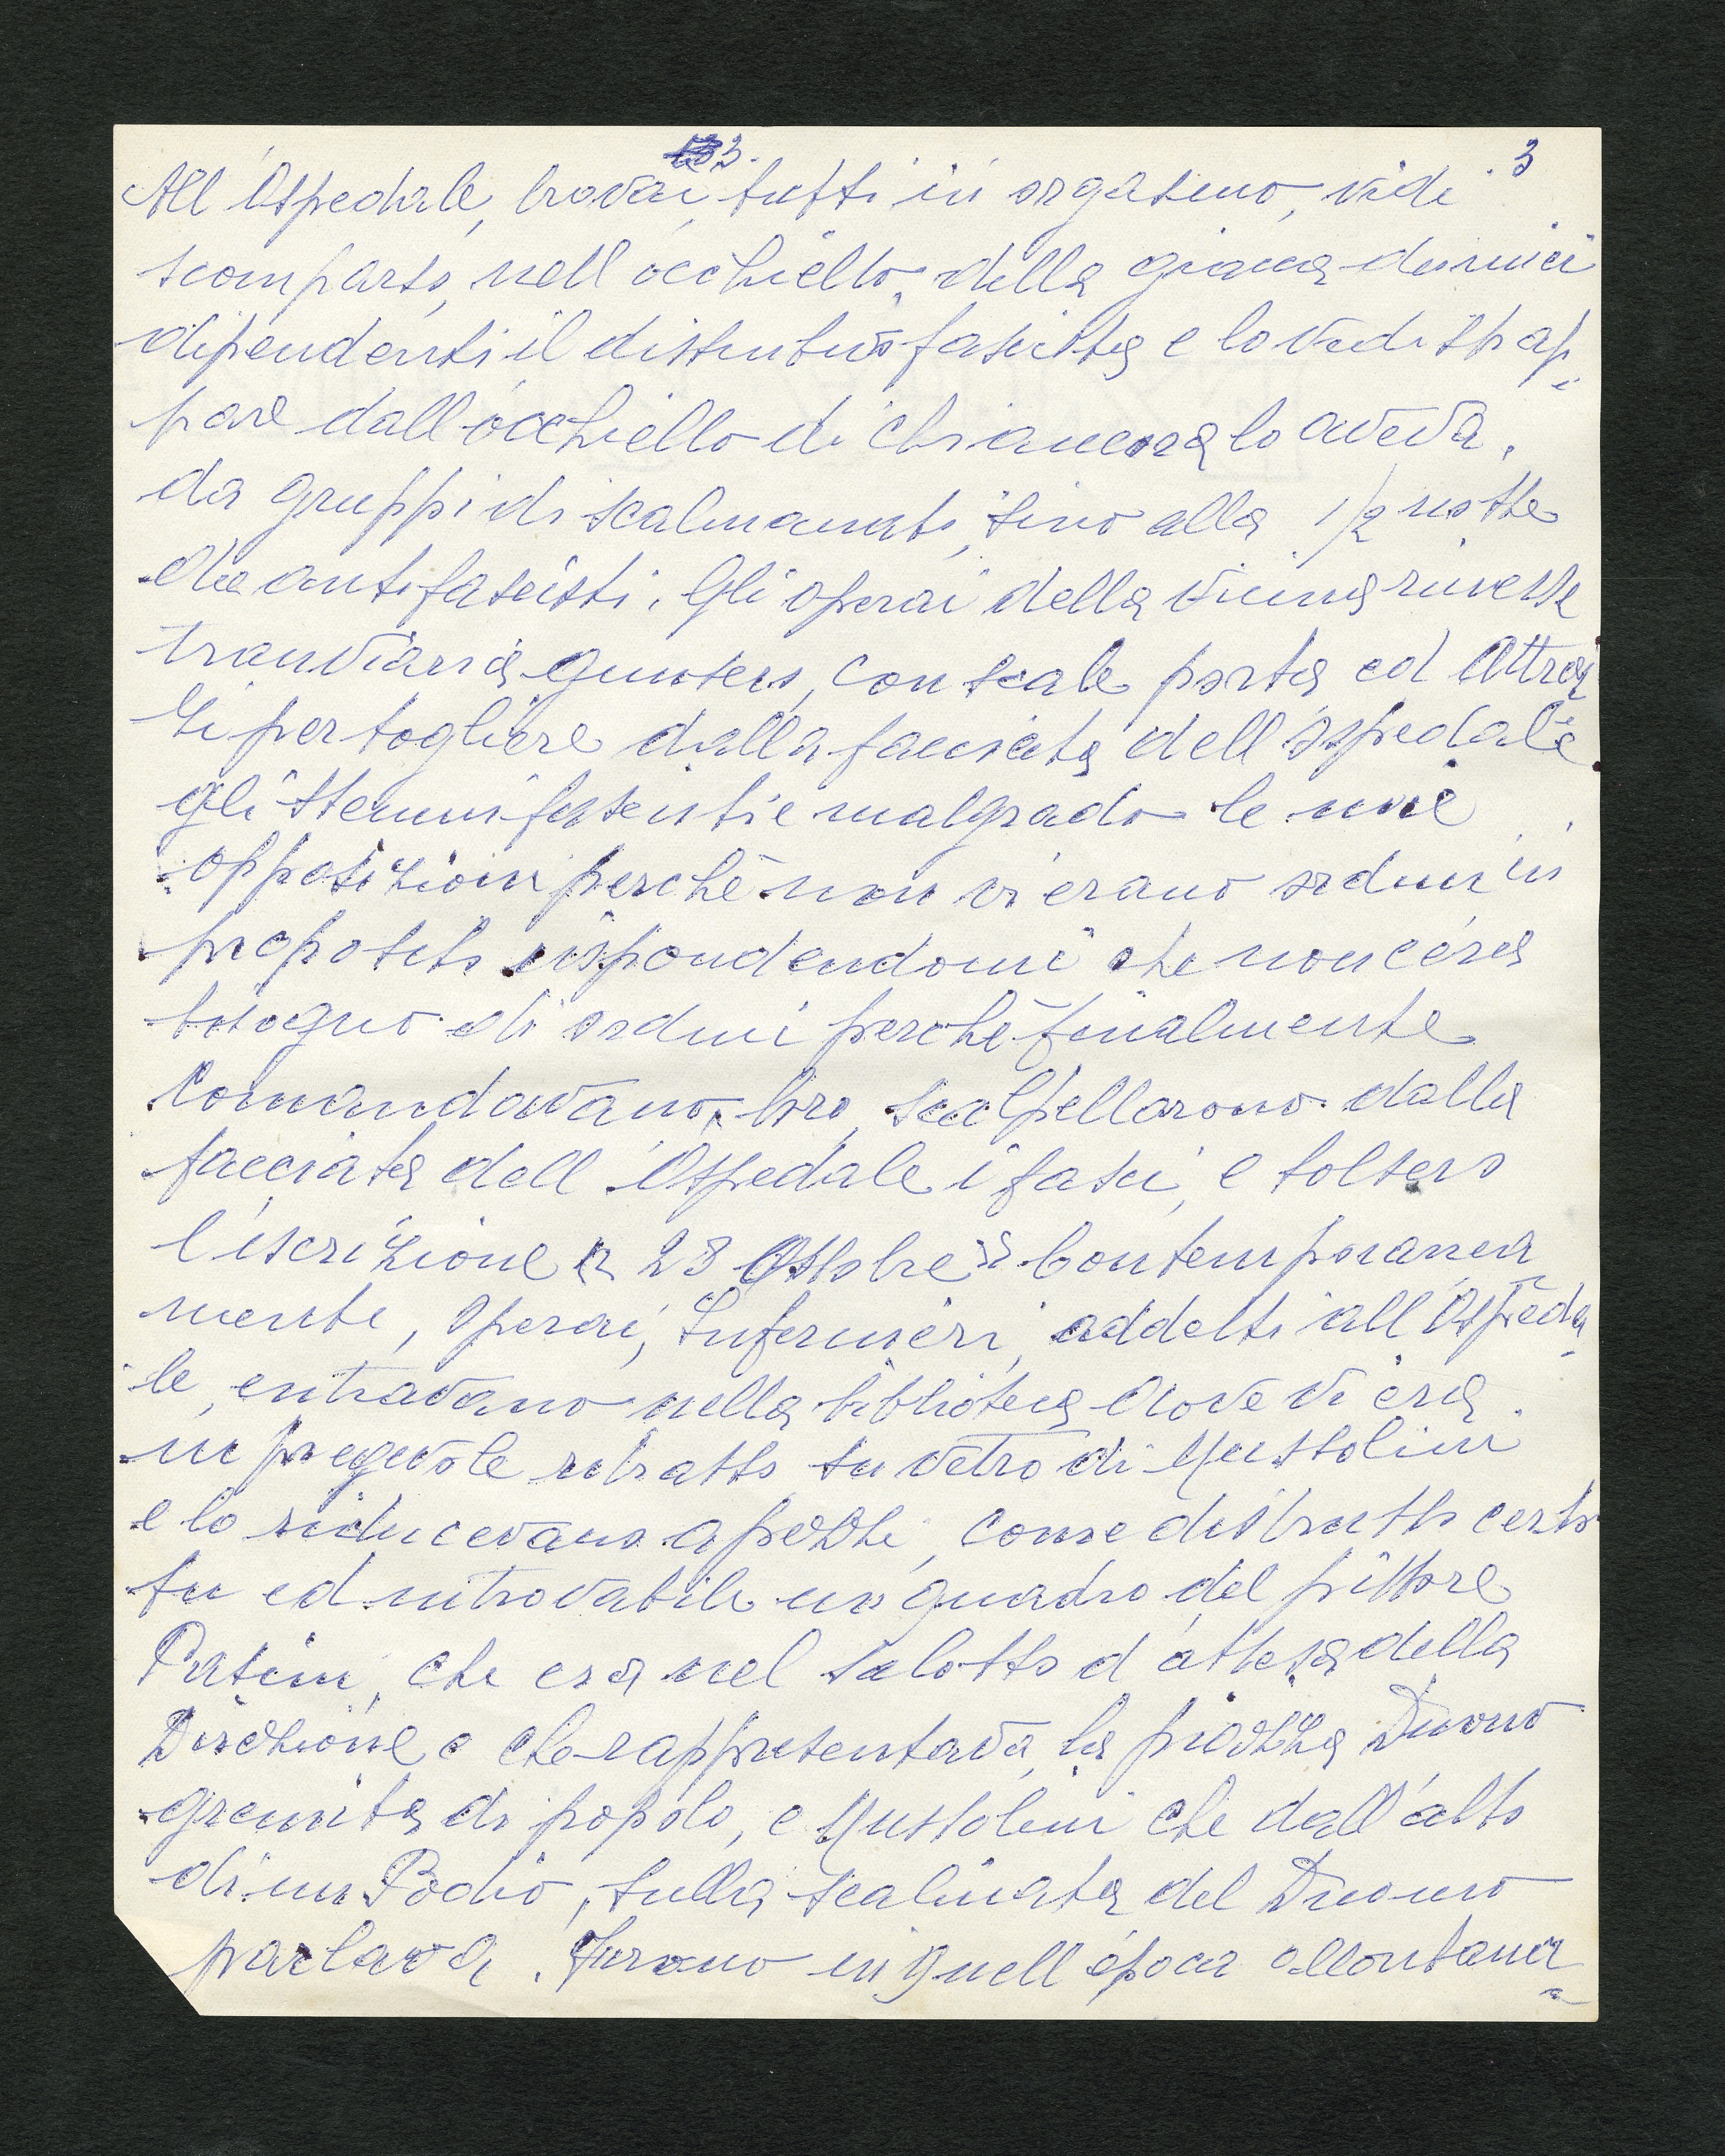 3. 3
All'Ospedale, trovai, tutti in orgasmo, vidi
scomparso, nell'occhiello, della giacca dei miei
dipendenti il distintivo fascista e lo vidi strap-
pare dall'occhiello di chi ancora lo aveva,
da gruppi di scalmanati, sino alla 1/2 notte
antifascisti. Gli operai della vicina rimessa
tranviaria giunsero, con scale porta ed attrez
zi per togliere dalla facciata dell'ospedale
gli stemmi fascisti e malgrado le mie
opposizioni perchè non vi erano ordini in
proposito rispondendomi che non c'era
bisogno di ordini perchè finalmente
comandavano, loro, scalpellarono dalla
facciata dell'Ospedale i fasci, e tolsero
l'iscrizione " 28 Ottobre ". Contemporanea
mente, operai, Infermieri, addetti all'Ospeda-
le, entravano nella biblioteca dove vi era
un pregevole ritratto su vetro di Mussolini
e lo riducevano a pezzi, come distrutto certo
fu ed introvabile un quadro del pittore
che era nel salotto d'attesa della
Direzione e che rappresentava, la piazza Duomo
gremita di popolo, e Mussolini che dall'alto
di un Podio, sulla scalinata del Duomo
parlava. Furono in quell'epoca allontana-